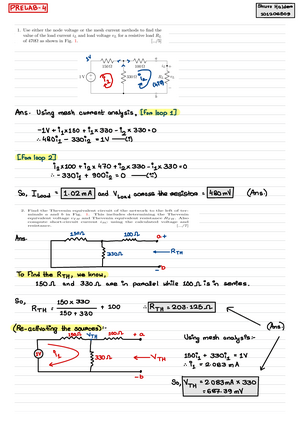 PRELAB-4
1. Use either the node voltage or the mesh current methods to find the
value of the load current iL and load voltage vL for a resistive load RL
of 470Ω as shown in Fig. 1.
1V
150Ω
100Ω
1V
330Ω
i1
i2
RL
vL
Ans. Using mesh current analysis, [For loop 1]
-1V + i1×150 + i1×330 - i2×330 = 0
∴ 480i1 - 330i2 = 1V —(i)
[For loop 2]
i2×100 + i2×470 + i2×330 - i1×330 = 0
∴ -330i1 + 900i2 = 0 —(ii)
So, ILoad = 1.02mA and VLoad across the resistor = 480mV (Ans)
2. Find the Thevenin equivalent circuit of the network to the left of ter-
minals a and b in Fig. 1. This includes determining the Thevenin
equivalent voltage vTH and Thevenin equivalent resistance RTH. Also
compute short-circuit current iSC using the calculated voltage and
resistance.
Ans.
150Ω
100Ω
a+
330Ω
RTH
-b
To Find the RTH, we know,
150Ω and 330Ω are in parallel while 100Ω is in series.
So,
RTH = 150 × 330 / 150 + 330 + 100 ∴ RTH = 203.125Ω
(Re-activating the sources):-
150Ω
VTH
100Ω
+a
1V
i1
330Ω
VTH
-b
Using mesh analysis:-
150i1 + 330i1 = 1V
∴ i1 = 2.083 mA
So, VTH = 2.083mA × 330
= 687.39 mV